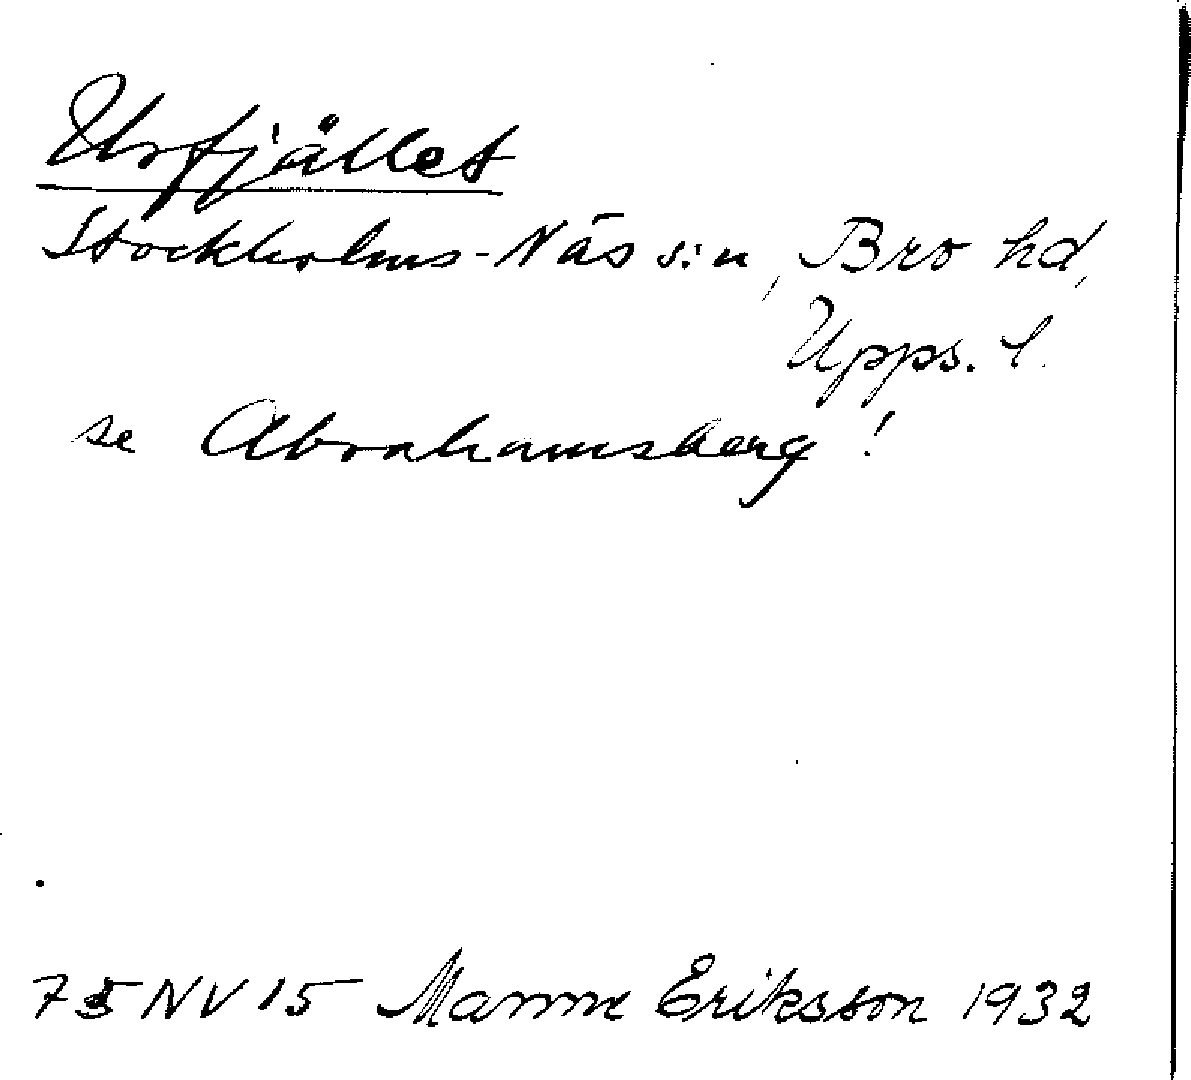 Urfjället
Stockholms-Näs s:n, Bro hd,
Upps. l.
se Abrahamsberg!
75 NV 15 Manne Eriksson 1932